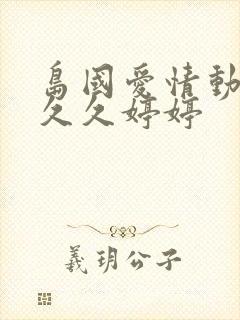 島國愛情動
久久婷婷
義玥公子